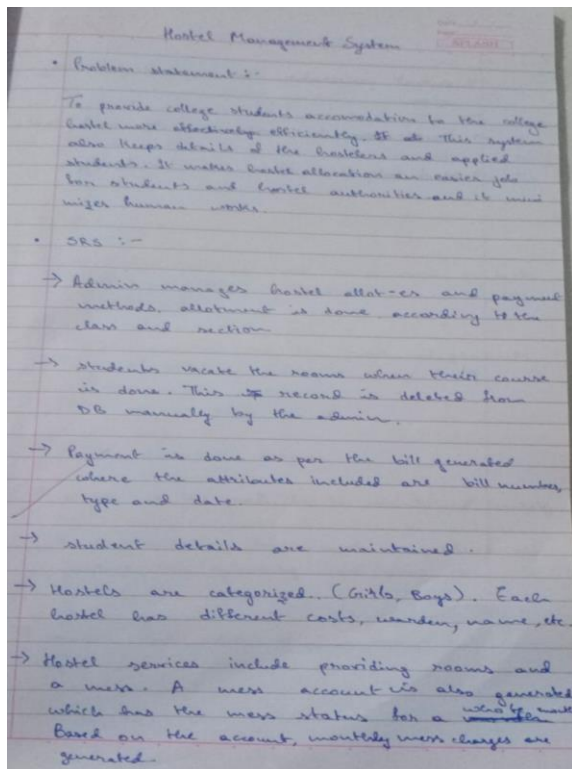 Hostel Management System
• Problem statement :-
To provide college students accomodation to the college
hostel more effectively efficiently. This system
also keeps details of the hostelers and applied
students. It makes hostel allocation an easier job
for students and hostel authorities and it mini
mizes human works.
• SRS :-
→ Admin manages hostel allot-es and payment
methods. allotment is done according to the
class and section
→ students vacate the rooms when their course
is done. This record is deleted from
DB manually by the admin.
→ Payment is done as per the bill generated
where the attributes included are bill number,
type and date.
→ student details are maintained.
→ Hostels are categorized. (Girls, Boys). Each
hostel has different costs, warden, name, etc.
→ Hostel services include providing rooms and
a mess. A mess account is also generated
which has the mess status for a
Based on the account, monthly mess charges are
generated.